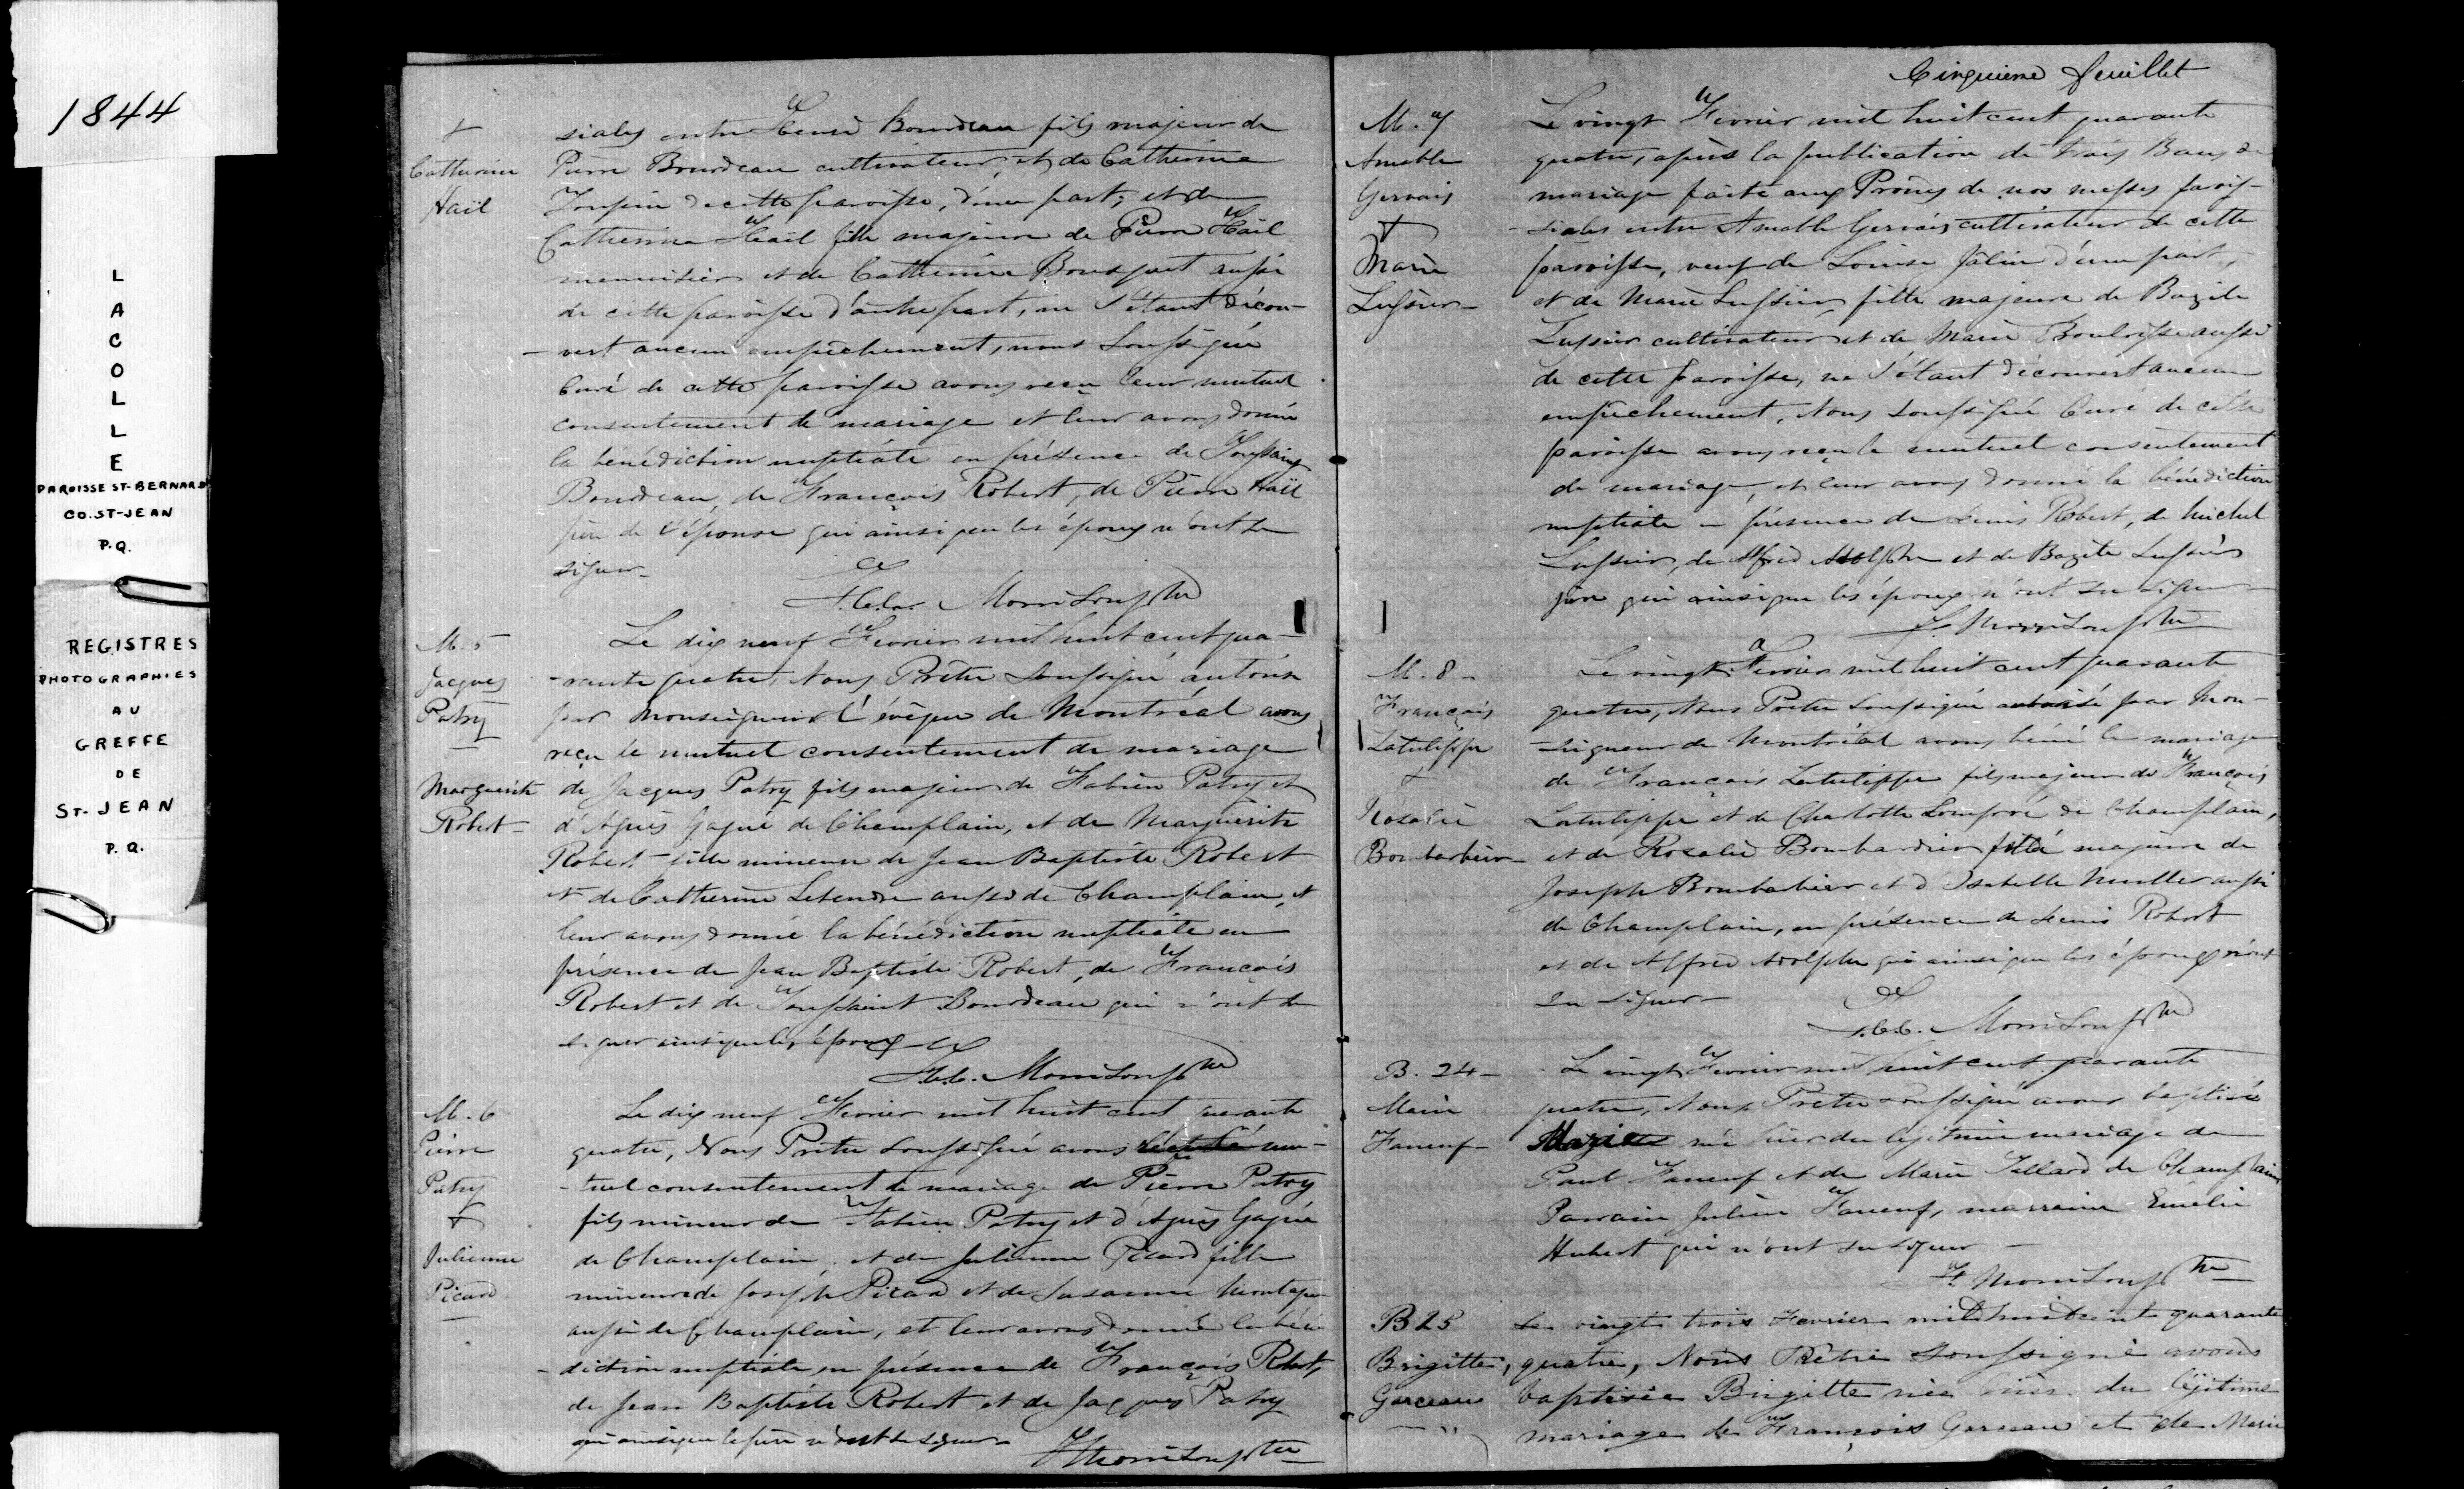 1844
LACOLLE
PAROISSE ST-BERNARD
CO. ST-JEAN
P.Q.
REGISTRES
PHOTOGRAPHIES
AU
GREFFE
DE
ST-JEAN
P.Q.
+
Catherine
Haïl
siales entre Bourdeau fils majeur de
Pierre Bourdeau cultivateur, et de Catherine
de cette paroisse, d'une part; et de
Catherine Haïl fille majeure de Pierre Haïl
menuisier et de Catherine Bousquet aussi
de cette paroisse d'autre part, ne s'étant décou-
-vert aucun empêchement, nous soussigné
Curé de cette paroisse avons reçu leur mutuel
consentement de mariage et leur avons donné
la bénédiction nuptiale en présence de Toussaint
Bourdeau, de François Robert, de Pierre Haïl
père de l'épouse qui ainsi que les époux n'ont su
signer_
Morrison Ptre
M. 5
Jacques
Patry
—
Marguerite
Robert_
Le dix neuf Fevrier mil huit cent qua-
-rante quatre, Nous Prêtre soussigné autorisé
par Monseigneur l'évêque de Montréal avons
reçu le mutuel consentement de mariage
de Jacques Patry fils majeur de Fabien Patry et
d'Agnès Gagné de Champlain, et de Marguerite
Robert fille mineure de Jean Baptiste Robert
et de Catherine Letendre aussi de Champlain, et
leur avons donné la bénédiction nuptiale en
présence de Jean Baptiste Robert, de François
Robert et de Toussaint Bourdeau qui n'ont su
signer ainsi que les époux
Morrison Ptre
M. 6
Pierre
Patry
+
Julienne
Picard
Le dix neuf Fevrier mil huit cent quarante
quatre, Nous Prêtre soussigné avons mu-
-tuel consentement de mariage de Pierre Patry
fils mineur de Fabien Patry et d'Agnès Gagné
de Champlain, et de Julienne Picard fille
mineure de Joseph Picard et de Susanne
aussi de Champlain, et leur avons donné la béné
-diction nuptiale en présence de François Robert,
de Jean Baptiste Robert et de Jacques Patry
qui ainsi que n'ont su signer_
Morrison Ptre
Cinquième feuillet
M. 7
Amable
Gervais
+
Marie
Lussier_
Le vingt Fevrier mil huit cent quarante
quatre, après la publication de trois Bans de
mariage faite aux Prônes de nos messes parois-
-siales entre Amable Gervais cultivateur de cette
paroisse, veuf de Louise d'une part,
et de Marie Lussier fille majeure de Bazile
Lussier cultivateur et de Marie aussi
de cette paroisse, ne s'étant découvert aucun
empêchement, Nous soussigné Curé de cette
paroisse avons reçu le mutuel consentement
de mariage, et leur avons donné la bénédiction
nuptiale en présence de Robert, de Michel
Lussier, de Alfred Adolphe et de Bazile Lussier
père qui ainsi que les époux n'ont su signer
Morrison Ptre
M. 8_
François
Latulippe
+
Rosalie
Bombardier_
Le vingt Fevrier mil huit cent quarante
quatre, Nous Prêtre soussigné autorisé par Mon-
-seigneur de Montréal avons béni le mariage
de François Latulippe fils majeur de François
Latulippe et de Charlotte Lompré de Champlain,
et de Rosalie Bombardier fille majeure de
Joseph Bombardier et d'Isabelle Muller aussi
de Champlain, en présence de Robert
et de Alfred Adolphe qui ainsi que les époux n'ont
su signer_
Morrison Ptre
B. 24_
Marie
Faneuf_
Le vingt Fevrier mil huit cent quarante
quatre, Nous Prêtre soussigné avons baptisé
Marie née hier du légitime mariage de
Paul Faneuf et de Marie Tellard de Champlain
Parrain Julien Faneuf, marraine Emélie
Hubert qui n'ont su signer_
F. Morrison Ptre
B 25
Brigitte,
Garceau
Le vingt trois Fevrier mil huit cent quarante
quatre, Nous Prêtre soussigné avons
baptisée Brigitte née hier du légitime
mariage de François Garceau et de Marie